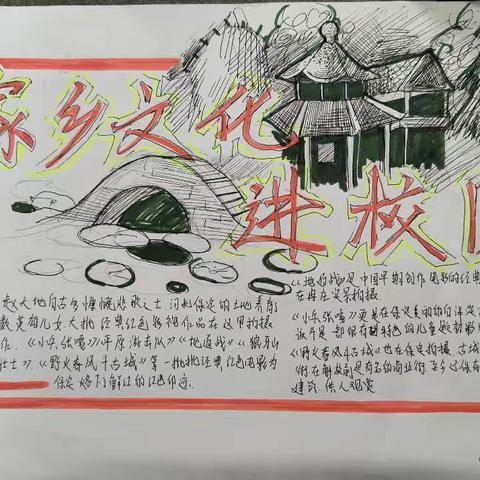 家乡文化
进校
赵大地自古多慷慨悲歌之士 河北保定的土地养育
数英雄儿女,大批经典红色影视作品在这里拍摄
作.《小兵张嘎》《平原游击队》《地道战》《狼牙山
壮士》.《野火春风斗古城》等一批批经典红色电影为
保定烙下了鲜红的红色印迹.
《地道战》是中国早期创作电影的经典
在冉庄实景拍摄
《小兵张嘎》更是在保定美丽的白洋淀
该片是一部很有特色的儿童题材影
《野火春风斗古城》也在保定拍摄.古城
街在解放前是有名的商业街,至今还保存
建筑.供人观赏